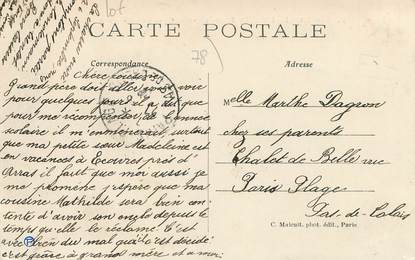 lot
78
CARTE POSTALE
Correspondance
Adresse
Chère cousine
Grand père doit aller vous voir
pour quelques jours il a dit que
pour me récompenser de l'année
scolaire il m'emmènerait, surtout
que ma petite sœur Madeleine est
en vacances à Ecoivres près d'
Arras il faut que moi aussi je
me promène j'espère que ma
cousine Mathilde sera bien con-
tente d'avoir son depuis le
temps qu'elle le réclame. C'est
avec bien du mal qu'il s'est décidé
c'est grâce à grand mère et a moi
Melle Marthe Dagron
chez ses parents
Chalet de Belle vue
Paris Plage
Pas-de-Calais
C. Malcuit, phot. édit., Paris